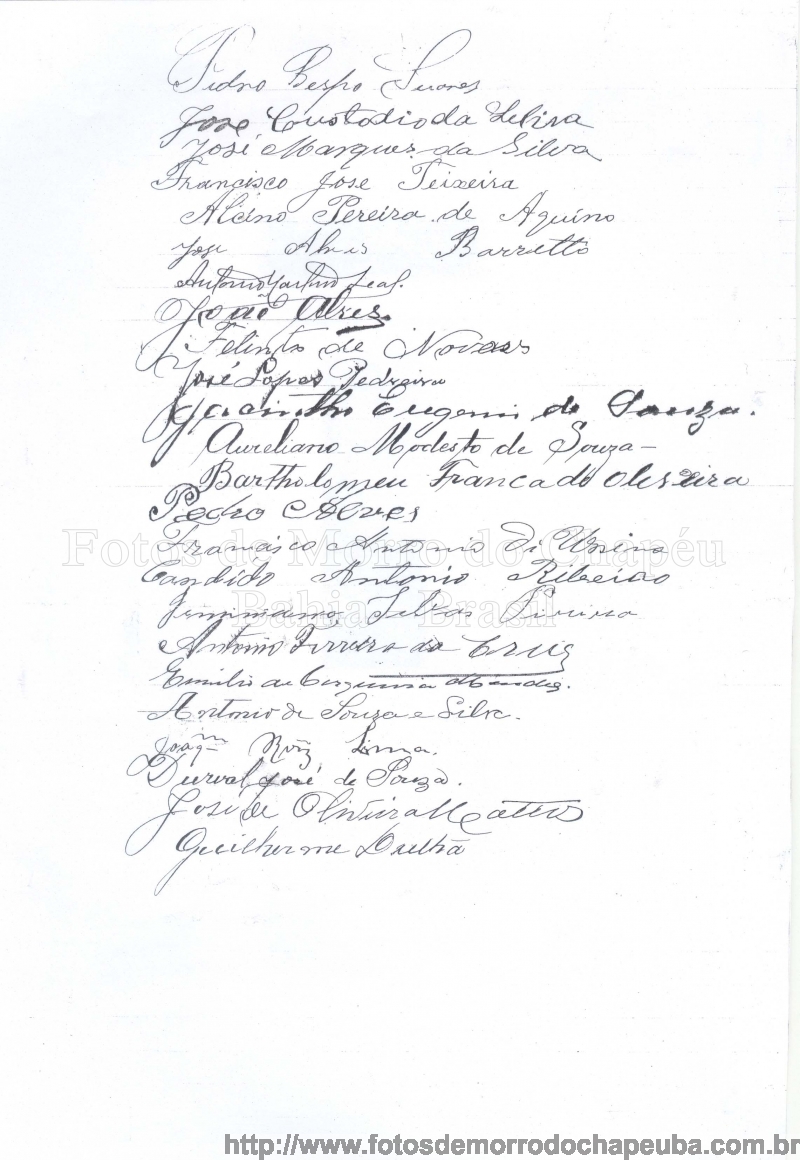 Pedro Bespo Suares
José Custodio da
José Marques da Silva
Francisco José Teixeira
Alcino Pereira de Aquino
José Alves Barretto
Antonio Leal.
João Alves
Felinto de Novaes
José Lopes Pedreira
Jacintho Eugenio de Souza.
Aureliano Modesto de Souza—
Bartholomeu Franca do Oliveira
Pedro Alves
Fotos de Morro do Chapéu
Francisco Antonio di
Candido Antonio Ribeiro
Bahia Brasil
Silva
Antonio Ferreira da Cruz
Emilio de Cerqueira Mendes.
Antonio de Souza e Silva.
Joaqm Roiz Lima.
Durval José de Souza.
José de Oliveira Mattos
Guilherme
http://www.fotosdemorrodochapeuba.com.br